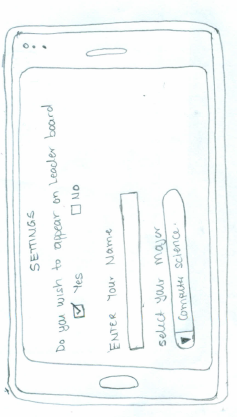 SETTINGS
Do you wish to appear on Leader board
Yes NO
ENTER Your Name
select your major
Computer science.